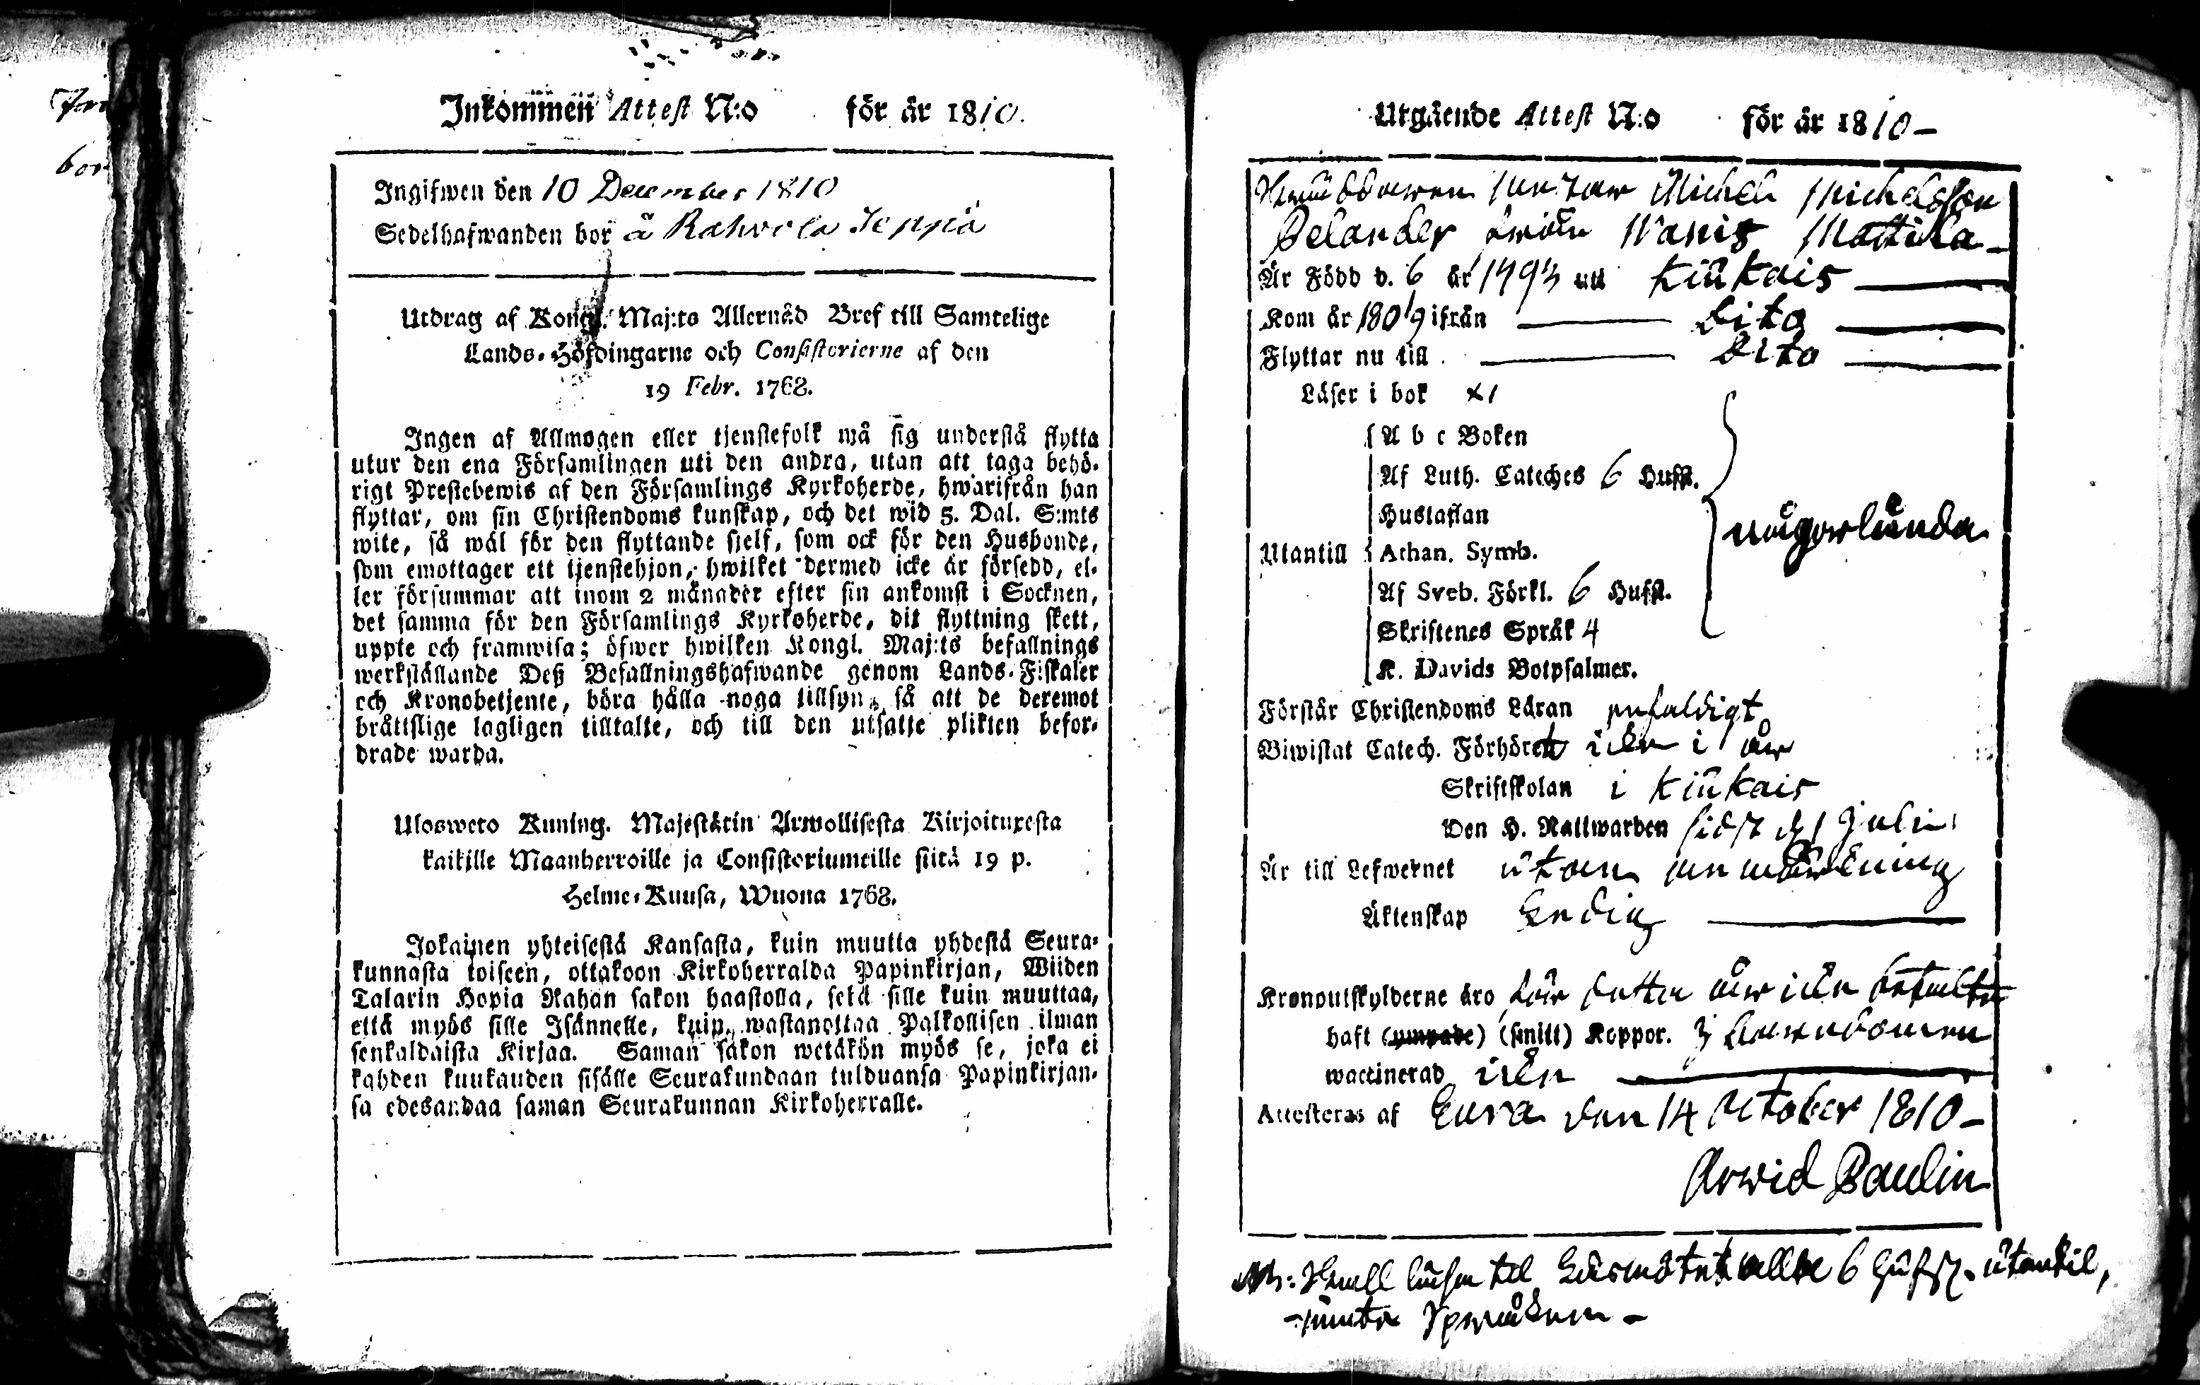 Inkommen Attest N:o för år 1810.
Ingifwen den 10 December 1810
Sedelhafwanden bor å Rahvola Seppä
Utdrag af Kongl. Maj:ts Allernåd Bref till Samtelige
Lands-Höfdingarne och Consistorierne af den
19 Febr. 1768.
Ingen af Allmogen eller tjenstefolk må sig understå flytta
utur den ena Församlingen uti den andra, utan att taga behö-
rigt Prestebewis af den Församlings Kyrkoherde, hwarifrån han
flyttar, om sin Christendoms kunskap, och det wid 5. Dal. S:mts
wite, så wäl för den flyttande sjelf, som ock för den Husbonde,
som emottager ett tjenstehjon, hwilket dermed icke är försedd, el-
ler försummar att inom 2 månader efter sin ankomst i Socknen,
det samma för den Församlings Kyrkoherde, dit flyttning skett,
uppte och framwisa; öfwer hwilken Kongl. Maj:ts befallnings
werkställande Deß Befallningshafwande genom Lands-Fiskaler
och Kronobetjente, böra hålla noga tillsyn, så att de deremot
bråttslige lagligen tilltalte, och till den utsatte plikten befor-
drade warda.
Uloswето Kuning. Majestätin Armollisesta Kirjoituxesta
kaikille Maanherroille ja Consistoriumeille siitä 19 p.
Helme-Kuusa, Wuona 1768.
Jokainen yhteisestä Kansasta, kuin muutta yhdestä Seura-
kunnasta toiseen, ottakoon Kirkoherralda Papinkirjan, Wiiden
Talarin Hopia Rahan sakon haastolla, sekä sille kuin muuttaa,
että myös sille Isännelle, kuin wastanottaa Palkollisen ilman
senkaldaista Kirjaa. Saman sakon wetäkön myös se, joka ei
kahden kuukauden sisälle Seurakundaan tulduansa Papinkirjan-
sa edesandaa saman Seurakunnan Kirkoherralle.
Utgående Attest N:o för år 1810 –
Michel Michelsson
Selander ifrån Mattila –
Är Född d. 6 år 1793 uti Kiukais
Kom år 1809 ifrån Dito
Flyttar nu till Dito
Läser i bok x1
Utantill
A b c Boken
Af Luth. Cateches 6 Hufst.
Hustaflan
Athan. Symb.
Af Sveb. Förkl. 6 Hufst.
Skriftenes Språk 4
K. Davids Botpsalmer.
någorlunda
Förstår Christendoms Läran enfaldigt
Biwistat Catech. Förhöret icke i år
Skriftskolan i Kiukais
Den H. Nattwarden sidst d. 1 Julii
Är till Lefwernet utan anmärkning
Äktenskap Ledig
Kronoutskylderne äro för detta år icke betalte
haft (ympade) (smitt) Koppor. i barndomen
waccinerad icke
Attesteras af Eura den 14 October 1810 –
Arwid Paulin
NB: Skall läsa til Läsmötet alla 6 Hufst. utantil,
jämte Språken –